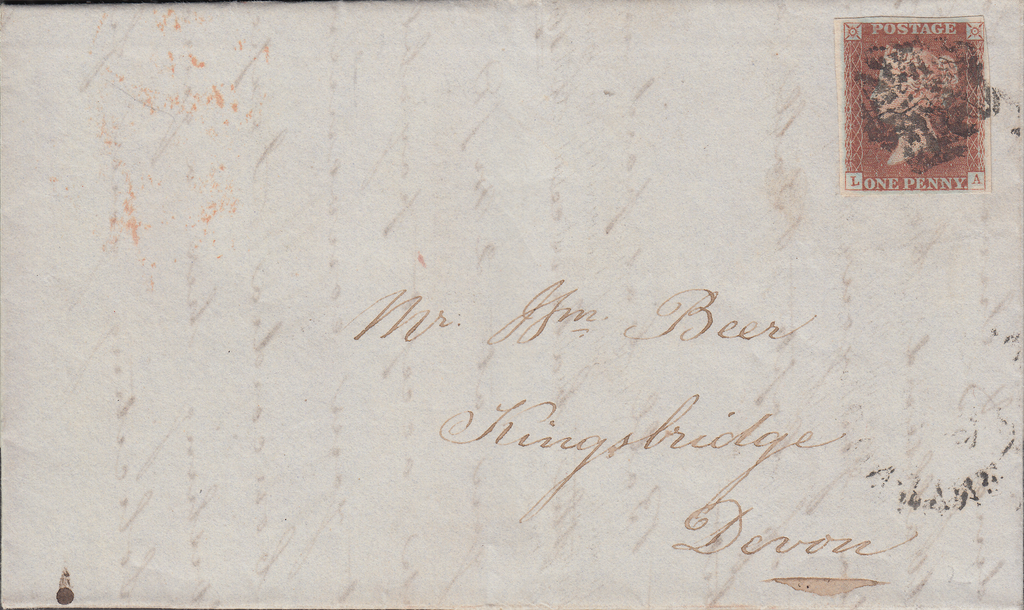 POSTAGE
L ONE PENNY A
Mr. Wm. Beer
Kingsbridge
Devon